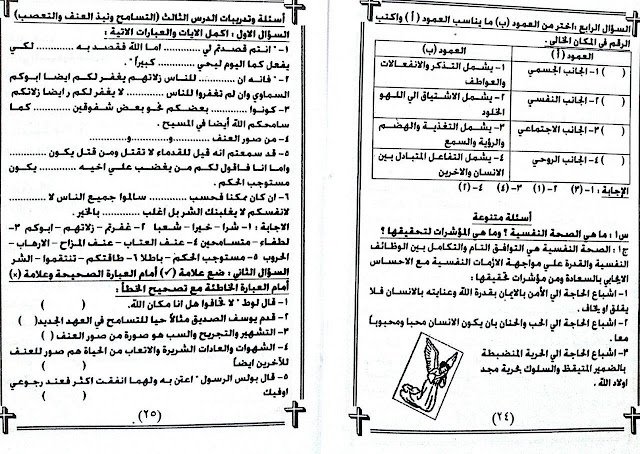 السؤال الرابع : اختر من العمود (ب) ما يناسب العمود ( أ ) واكتب
الرقم فى المكان الخالى .
العمود ( أ )
العمود (ب)
( ) ١- الجانب الجسمي
١- يشمل التذكر والانفعالات
والعواطف
( ) ٢- الجانب النفسي
٢- يشمل الاشتياق الي اللهو
الخلود
( ) ٣- الجانب الاجتماعي
٣- يشمل التغذية والهضم
والرؤية والسمع
( ) ٤- الجانب الروحي
٤- يشمل التفاعل المتبادل بين
الانسان والاخرين
الإجابة : ١- (٣) ٢- (١) ٣- (٤) ٤- (٢)
أسئلة متنوعة
س١ : ما هى الصحة النفسية ؟ وما هى المؤشرات لتحقيقها ؟
ج١ : الصحة النفسية هي التوافق التام والتكامل بين الوظائف
النفسية والقدرة علي مواجهة الازمات النفسية مع الاحساس
الايجابي بالسعادة ومن مؤشرات تحقيقها :
١- اشباع الحاجة الي الأمن بالايمان بقدرة الله وعنايته بالانسان فلا
يقلق او يخاف .
٢- اشباع الحاجة الي الحب والحنان بان يكون الانسان محبا ومحبوبا
معا .
٣- اشباع الحاجة الي الحرية المنضبطة
بالضمير المتيقظ والسلوك بحرية مجد
اولاد الله .
(٢٤)
أسئلة وتدريبات الدرس الثالث (التسامح ونبذ العنف والتعصب)
السؤال الاول : اكمل الايات والعبارات الاتية :
١- " انتم قصدتم لي .......... اما الله فقصد به .......... لكي
يفعل كما اليوم ليحي .......... كبيراً " .
٢- " فانه ان .......... للناس زلاتهم يغفر لكم ايضا ابوكم
السماوي وان لم تغفروا للناس .......... لا يغفر لكم ايضا زلاتكم
٣- كونوا .......... بعضكم نحو بعض شفوقين .......... كما
سامحكم الله أيضا في المسيح .
٤- من صور العنف ..........و..........و..........
٥- قد سمعتم انه قيل للقدماء لا تقتل ومن قتل يكون ..........
واما انا فاقول لكم من يغضب علي اخيه .......... يكون
مستوجب الحكم .
٦- ان كان ممكنا فحسب .......... سالموا جميع الناس لا ..........
لانفسكم لا يغلبنك الشر بل اغلب .......... بالخير .
الاجابة : ١- شرا - خيرا - شعبا ٢- غفرتم - زلاتهم - ابوكم ٣-
لطفاء - متسامحين ٤- عنف العتاب - عنف المزاح - الارهاب -
الحروب ٥- مستوجب الحكم - باطلا ٦- طاقتكم - تنتقموا - الشر
السؤال الثانى : ضع علامة (✓) أمام العبارة الصحيحة وعلامة (×)
أمام العبارة الخاطئة مع تصحيح الخطأ :
١- قال لوط " لا تخافوا هل انا مكان الله. ( )
٢- قدم يوسف الصديق مثالاً حيا للتسامح في العهد الجديد( )
٣- التشهير والتجريح والسب هو صورة من صور العنف ( )
٤- الشهوات والعادات الشريرة والاتعاب من الحياة هم صور للعنف
للآخرين ايضا ( )
٥- قال بولس الرسول " اعتن به ولهما انفقت اكثر فعند رجوعي
اوفيك ( )
(٢٥)